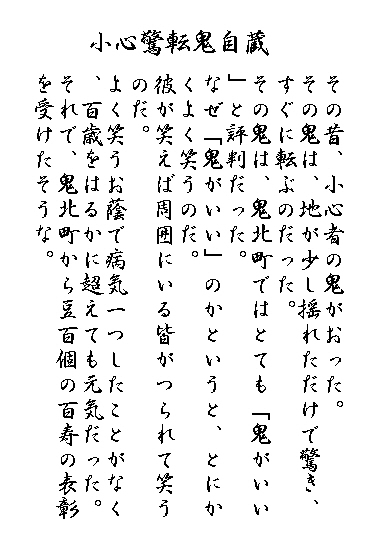 小心驚転鬼自蔵
その昔、小心者の鬼がおった。
その鬼は、地が少し揺れただけで驚き、
すぐに転ぶのだった。
その鬼は、鬼北町ではとても「鬼がいい
」と評判だった。
なぜ「鬼がいい」のかというと、とにか
くよく笑うのだ。
彼が笑えば周囲にいる皆がつられて笑う
のだ。
よく笑うお蔭で病気一つしたことがなく
、百歳をはるかに超えても元気だった。
それで、鬼北町から豆百個の百寿の表彰
を受けたそうな。